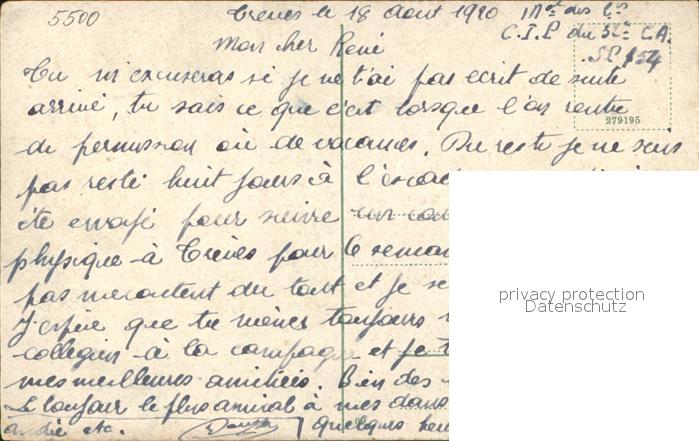 5500
Trèves le 18 Aout 1920
Mal des Lis
C.I.P du 32e C.A.
SP 154
Mon cher René
Tu m'excuseras si je ne t'ai pas écrit de suite
arrivé, tu sais ce que c'est lorsque l'on rentre
279195
de permission ou de vacances. Du reste je ne suis
pas resté huit jours à l'esca
été envoyé pour suivre un cou
physique à Trèves pour 6 semai
pas mecontent du tout et je se
J'espère que tu mènes toujours
collegien à la campagne et je t
mes meilleures amitiées. Bien des
Le bonjour le plus amical à mes dans
andré etc.
quelques
privacy protection
Datenschutz